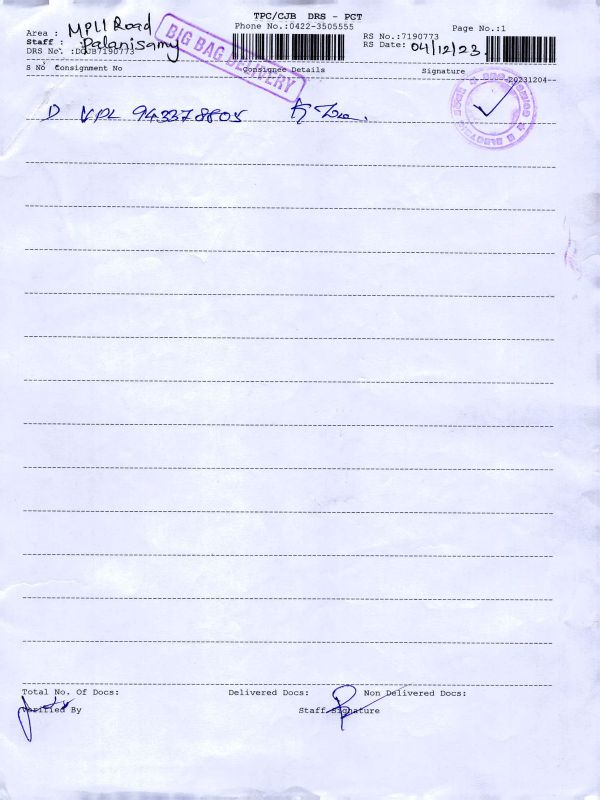 TPC/CJB DRS - PCT
Phone No.:0422-3505555
Page No.:1
Area : MPLI Road
Staff : Palanisamy
DRS No. :DCJB7190773
RS No.:7190773
RS Date: 04/12/23.
BIG BAG DELIVERY
S No Consignment No Consignee Details Signature
20231204
D VPL 943378805
Total No. Of Docs: Delivered Docs: Non Delivered Docs:
Verified By Staff Signature